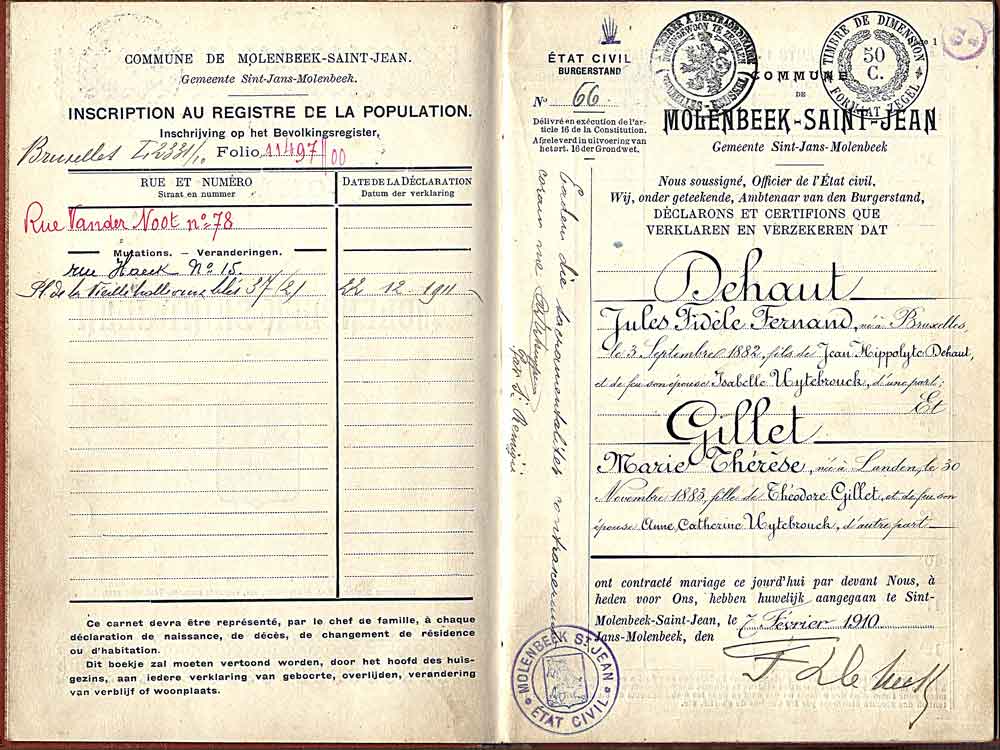 COMMUNE DE MOLENBEEK-SAINT-JEAN.
Gemeente Sint-Jans-Molenbeek.
INSCRIPTION AU REGISTRE DE LA POPULATION.
Inschrijving op het Bevolkingsregister.
Bruxelles I 2331/10 Folio 11497/00
RUE ET NUMÉRO
Straat en nummer
DATE DE LA DÉCLARATION
Datum der verklaring
Rue Vander Noot no 78
Mutations. - Veranderingen.
rue Haeck No 15.
Pl. de la Vieille halle aux blés 37 (2) 22 12 1911
Ce carnet devra être représenté, par le chef de famille, à chaque
déclaration de naissance, de décès, de changement de résidence
ou d'habitation.
Dit boekje zal moeten vertoond worden, door het hoofd des huis-
gezins, aan iedere verklaring van geboorte, overlijden, verandering
van verblijf of woonplaats.
ÉTAT CIVIL
BURGERSTAND
No 66
Délivré en exécution de l'ar-
ticle 16 de la Constitution.
Afgeleverd in uitvoering van
het art. 16 der Grondwet.
TIMBRE DE DIMENSION
50
C.
FORMAAT ZEGEL
COMMUNE
DE
MOLENBEEK-SAINT-JEAN
Gemeente Sint-Jans-Molenbeek
Nous soussigné, Officier de l'État civil,
Wij, onder geteekende, Ambtenaar van den Burgerstand,
DÉCLARONS ET CERTIFIONS QUE
VERKLAREN EN VERZEKEREN DAT
Dehaut
Jules Fidèle Fernand, né à Bruxelles,
le 3 Septembre 1882, fils de Jean Hippolyte Dehaut,
et de feu son épouse Isabelle Uytebrouck, d'une part;
Et
Gillet
Marie Thérèse, née à Landen, le 30
Novembre 1883, fille de Théodore Gillet, et de feu son
épouse Anne Catherine Uytebrouck, d'autre part
ont contracté mariage ce jourd'hui par devant Nous, à
heden voor Ons, hebben huwelijk aangegaan te Sint-
Molenbeek-Saint-Jean, le 7 Février 1910
Jans-Molenbeek, den
Eadem die sacramentaliter contraxerunt
coram me
MOLENBEEK ST JEAN
ÉTAT CIVIL